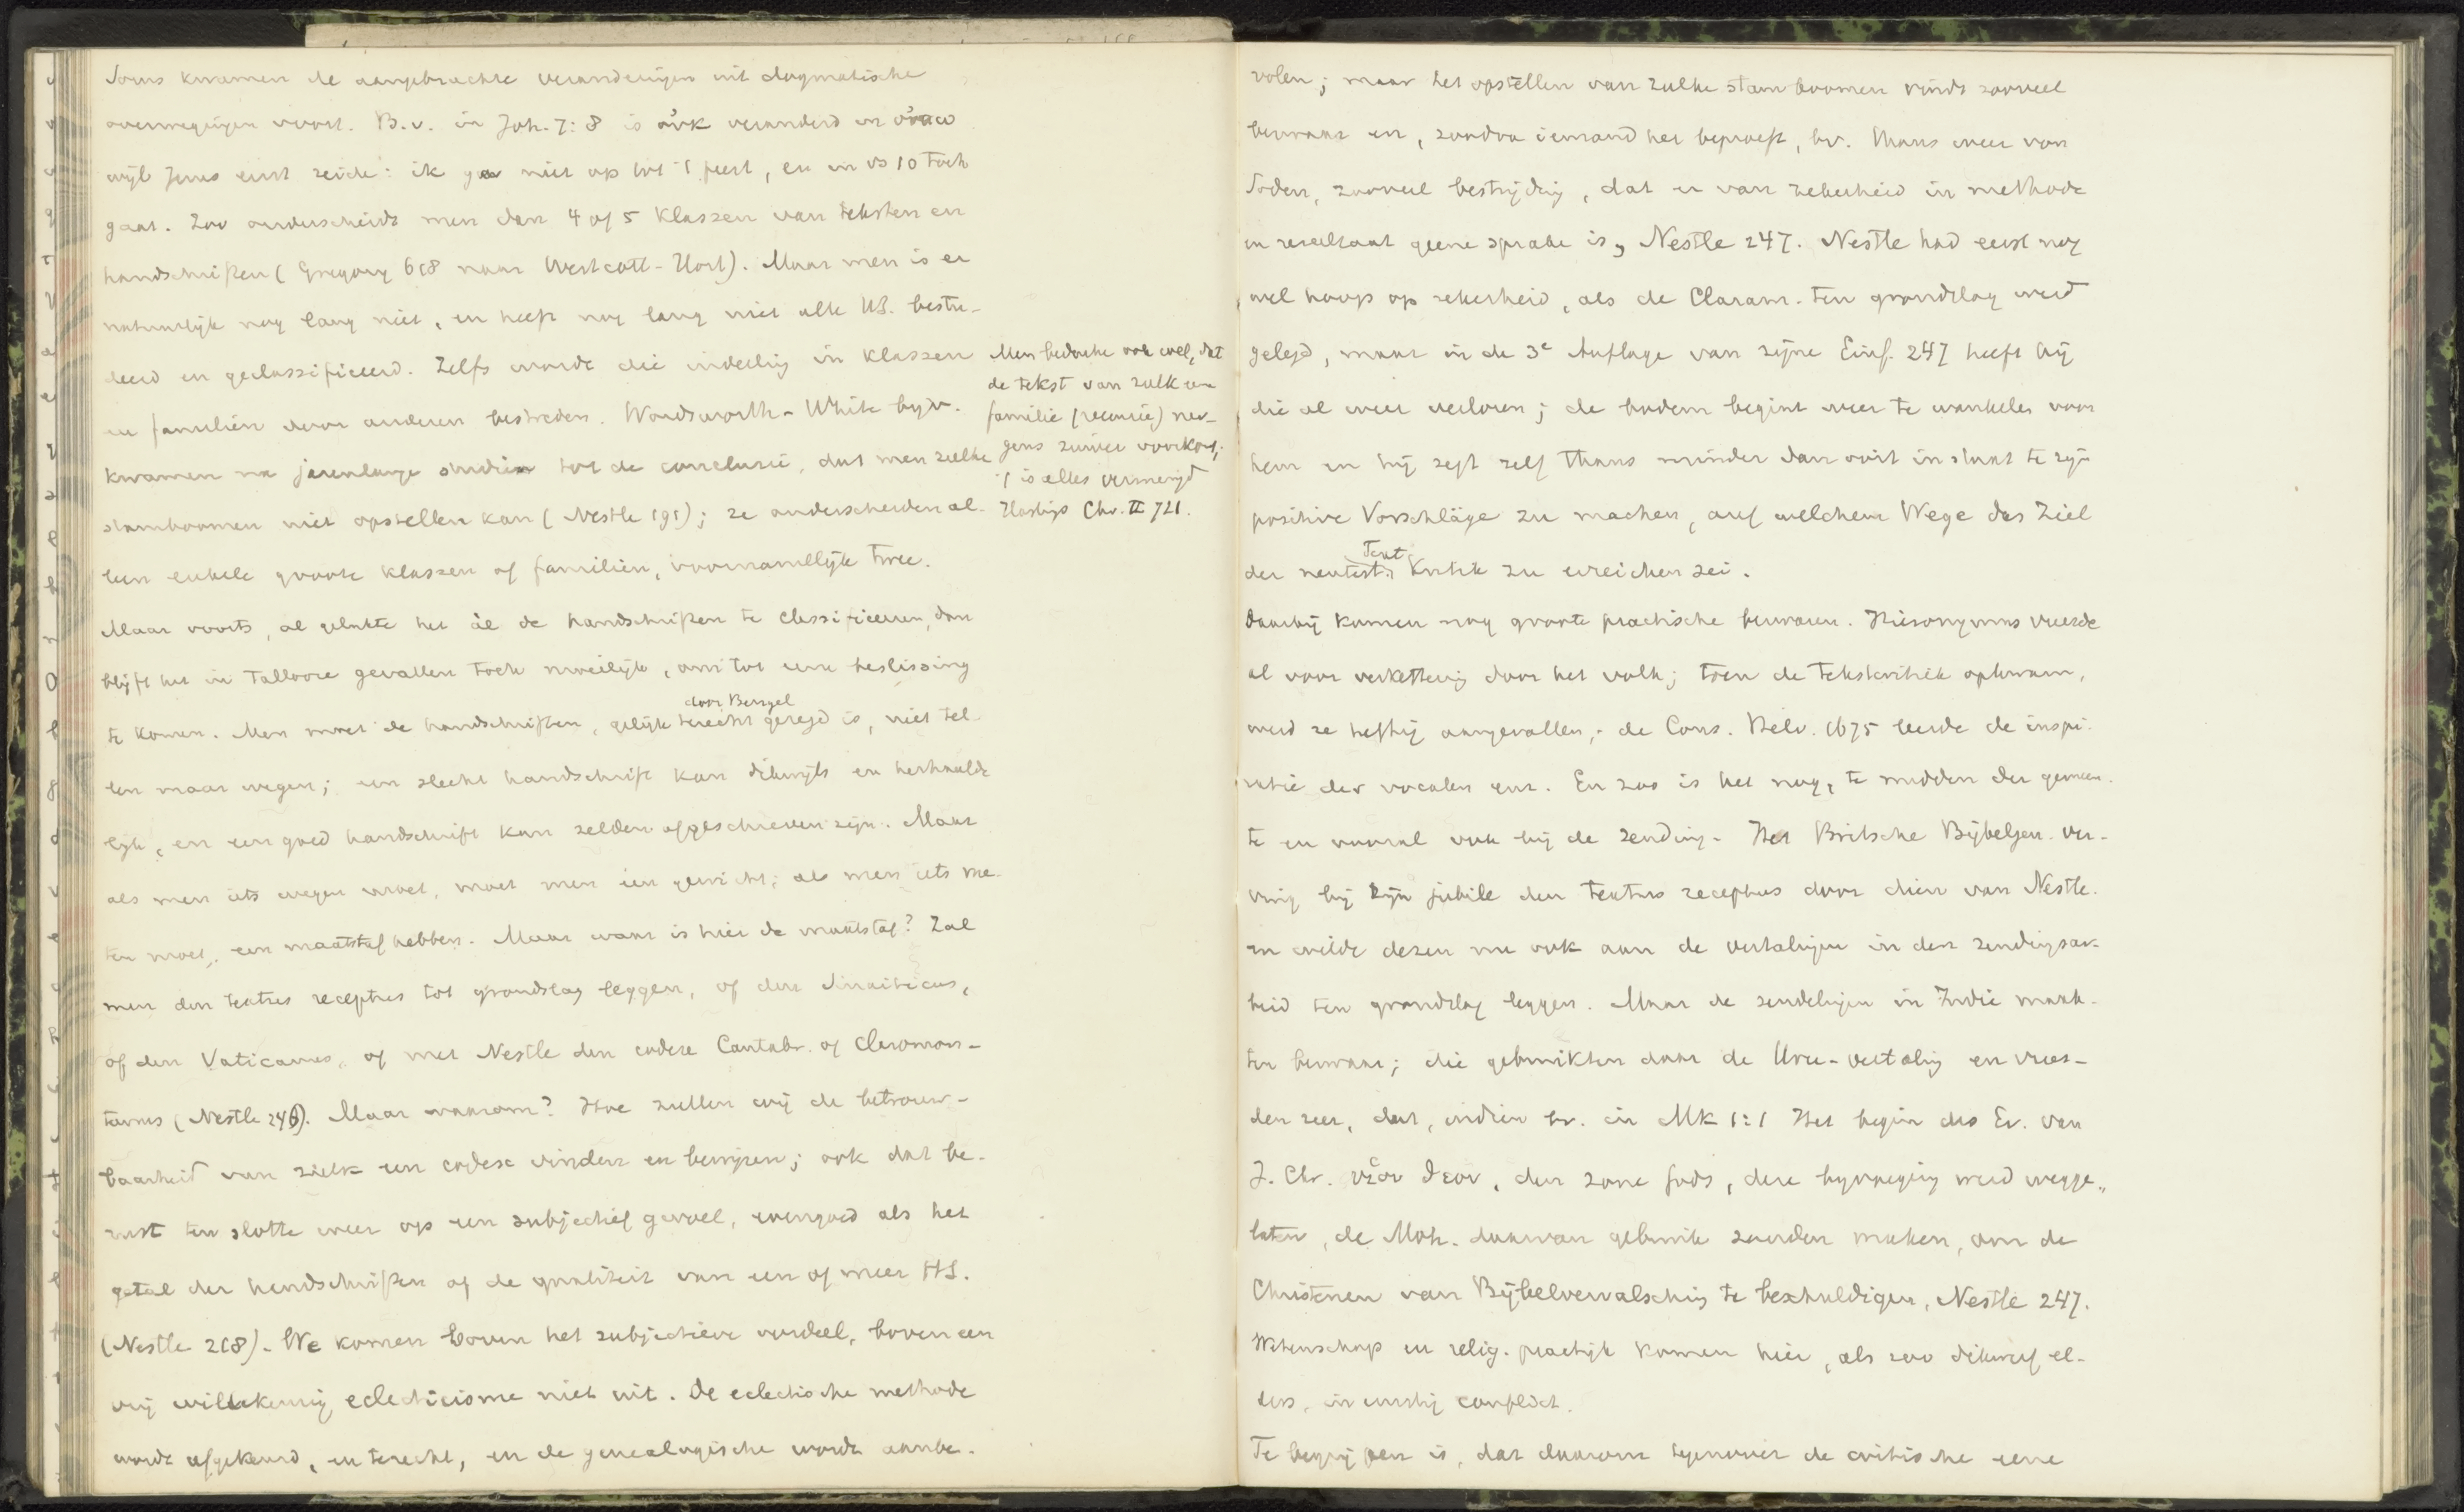 Soms kwamen de aangebrachte veranderingen uit dogmatische
overwegingen voort. B.v. in Joh. 7:8 is οὐκ veranderd in οὔπω
wijl Jezus eerst zeide: ik ga niet op tot 't feest, en in vs 10 toch
gaat. Zoo onderscheidt men dan 4 of 5 klassen van teksten en
handschriften (Gregory 618 naar Westcott-Hort). Maar men is er
natuurlijk nog lang niet, en heeft nog lang niet alle HS. bestu-
deerd en geclassificeerd. Zelfs wordt die indeeling in klassen
en familiën door anderen bestreden. Wordsworth-White bijv.
kwamen na jarenlange studiën tot de conclusie, dat men zulke
stamboomen niet opstellen kan (Nestle 191); ze onderscheiden al-
leen enkele groote klassen of familiën, voornamelijk twee.
Men bedenke ook wel, dat
de tekst van zulk een
familie (recensie) ner-
gens zuiver voorkomt;
't is alles vermengd
Hastings Chr. II 721.
Maar voorts, al gelukte het ál de handschriften te classificeeren, dan
blijft het in tallooze gevallen toch moeilijk, om tot eene beslissing
door Bengel
te komen. Men moet de handschriften, gelijk terecht gezegd is, niet tel-
len maar wegen; een slecht handschrift kan dikwijls en herhaalde-
lijk, en een goed handschrift kan zelden afgeschreven zijn. Maar
als men iets wegen moet, moet men een gewicht; als men iets me-
ten moet, een maatstaf hebben. Maar waar is hier de maatstaf? Zal
men den textus receptus tot grondslag leggen, of den Sinaiticus,
of den Vaticanus, of met Nestle den codex Cantabr. of Claromon-
tanus (Nestle 246). Maar waarom? Hoe zullen wij de betrouw-
baarheid van zulk een codex vinden en bewijzen; ook dat be-
rust ten slotte weer op een subjectief gevoel, evengoed als het
getal der handschriften of de qualiteit van een of meer HS.
(Nestle 218). We komen boven het subjectieve oordeel, boven een
vrij willekeurig eclecticisme niet uit. De eclectische methode
wordt afgekeurd, en terecht, en de genealogische wordt aanbe-
volen; maar het opstellen van zulke stamboomen vindt zooveel
bezwaar en, zoodra iemand het beproeft, bv. thans weer von
Soden, zooveel bestrijding, dat er van zekerheid in methode
en resultaat geene sprake is, Nestle 247. Nestle had eerst nog
wel hoop op zekerheid, als de Claram. ten grondslag werd
gelegd, maar in de 3e Auflage van zijne Einf. 247 heeft hij
die al weer verloren; de bodem begint weer te wankelen voor
hem en hij zegt zelf thans minder dan ooit in staat te zijn
positive Vorschläge zu machen, auf welchem Wege das Ziel
Text
der neutest. Kritik zu erreichen sei.
Daarbij komen nog groote practische bezwaren. Hieronymus vreesde
al voor verkettering door het volk; toen de tekstkritiek opkwam,
werd ze heftig aangevallen; de Cons. Helv. 1675 leerde de inspi-
ratie der vocalen enz. En zoo is het nog, te midden der gemeen-
te en vooral ook bij de zending. Het Britsche Bijbelgen. ver-
ving bij zijn jubilé den textus receptus door dien van Nestle.
en wilde dezen nu ook aan de vertalingen in den zendingsar-
beid ten grondslag leggen. Maar de zendelingen in Indië maak-
ten bezwaar; die gebruikten daar de Urdu-vertaling en vrees-
den zeer, dat, indien bv. in Mk 1:1 Het begin des Ev. van
J. Chr. υἱου θεου, den zone Gods, deze bijvoeging werd wegge-
laten, de Moh. daarvan gebruik zouden maken, om de
Christenen van Bijbelvervalsching te beschuldigen, Nestle 247.
Wetenschap en relig. practijk komen hier, als zoo dikwerf el-
ders, in ernstig conflict.
Te begrijpen is, dat daarom tegenover de critische eene